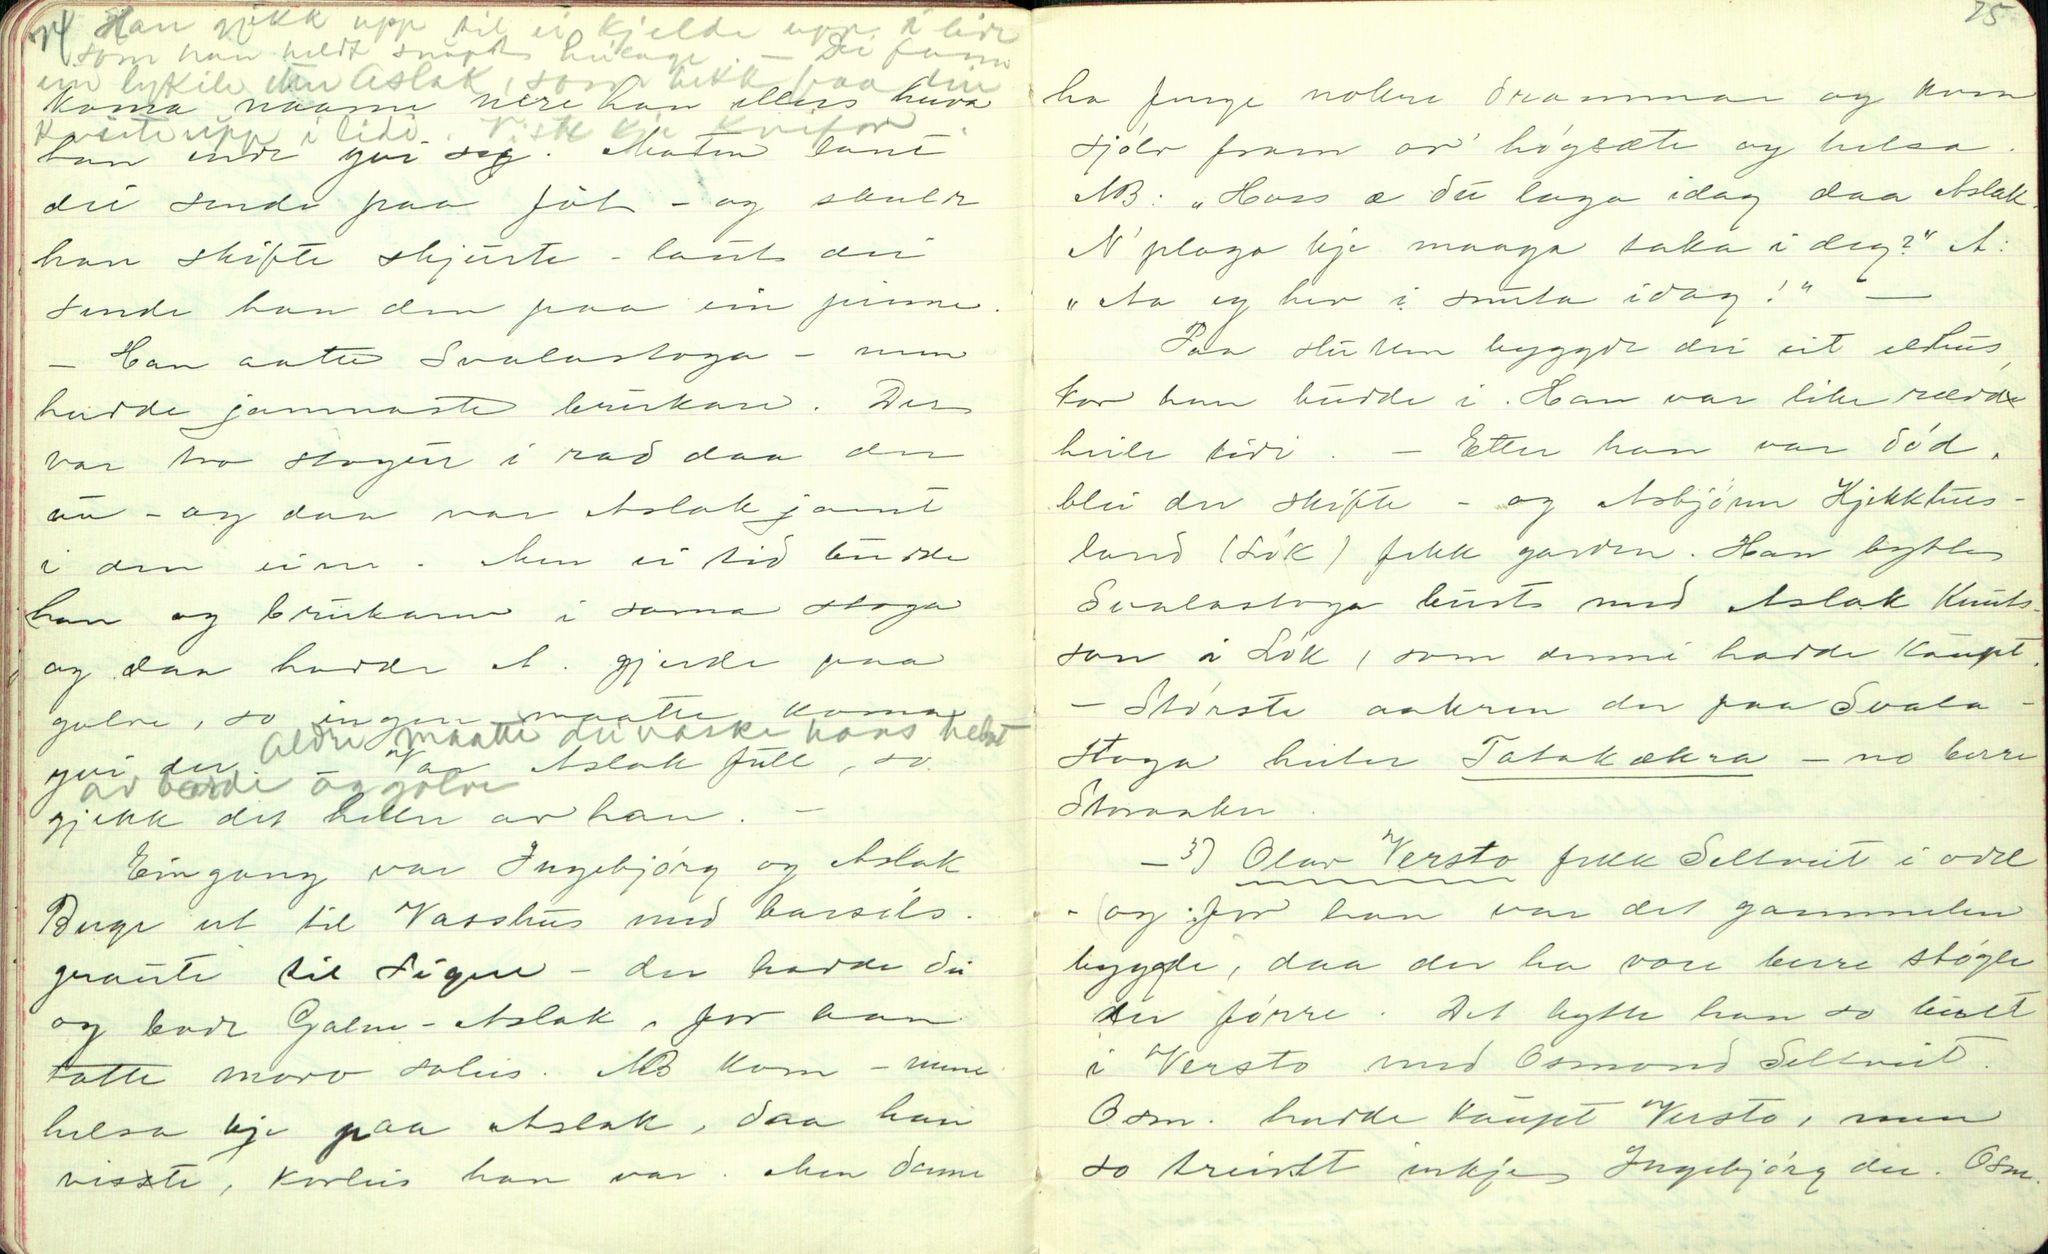 74 Han gjekk upp til ei kjelde upp i lidi
som han heldt
ein lykil etter Aslak, som hekk paa ein
koma naame nere han ellers huva
kviste upp i lidi. Viste kje kvifor.
han inde yvi seg. Maten laut
dei sende paa fjøl - og skulde
han skifte skjurte - laut dei
sende han den paa ein pinne.
- Han aatte Svalastoga - men
hadde jamnaste brukare. Der
var tvo stogur i rad daa den
au - og daa var Aslak jamt
i den eine. Men ei tid budde
han og brukaren i sama stoga
og daa hadde A. gjerde paa
golve, so ingen maatte koma
Aldri maatte dei vaske hans helvt
yvi der. - Var Aslak full, so
av bordi og golve
gjekk det heller av han. -
Eingong var Ingebjørg og Aslak
Berge ut til Vasshus med barsils-
graute til Signe - der hadde dei
og bode Galne-Aslak, for han
totte moro soleis. AB kom - mune
helsa kje paa Aslak, daa han
visste, korleis han var. Men denne
75
ha funge nokre drammar og kom
sjølv fram or høgsæte og helsa.
AB: "Hoss æ du laga idag daa Aslak.
N' plaga kje maaga taka i deg?" A:
"Aa eg her i snuta idag!" -
Paa slutten byggde dei eit eldhus,
kor han budde i. Han var like rædd
heile tidi. - Etter han var død,
blei der skifte - og Asbjørn Kjekkhus-
land (Løk) fekk garden. Han bytte
Svalastoga burt med Aslak Knuts-
son i Løk, som denne hadde kaupt.
- Største aakren der paa Svala-
stoga heiter Tatakækra - no berre
Storaaker.
- 3) Olav Versto fekk Seltveit i odel
- (og for han var det gammelen
bygde, daa der ha vore berre støyle
der førre. Det bytte han so burt
i Versto med Osmond Seltveit.
Osm. hadde kaupt Versto, men
so treivst inkje Ingebjørg der. Osm.